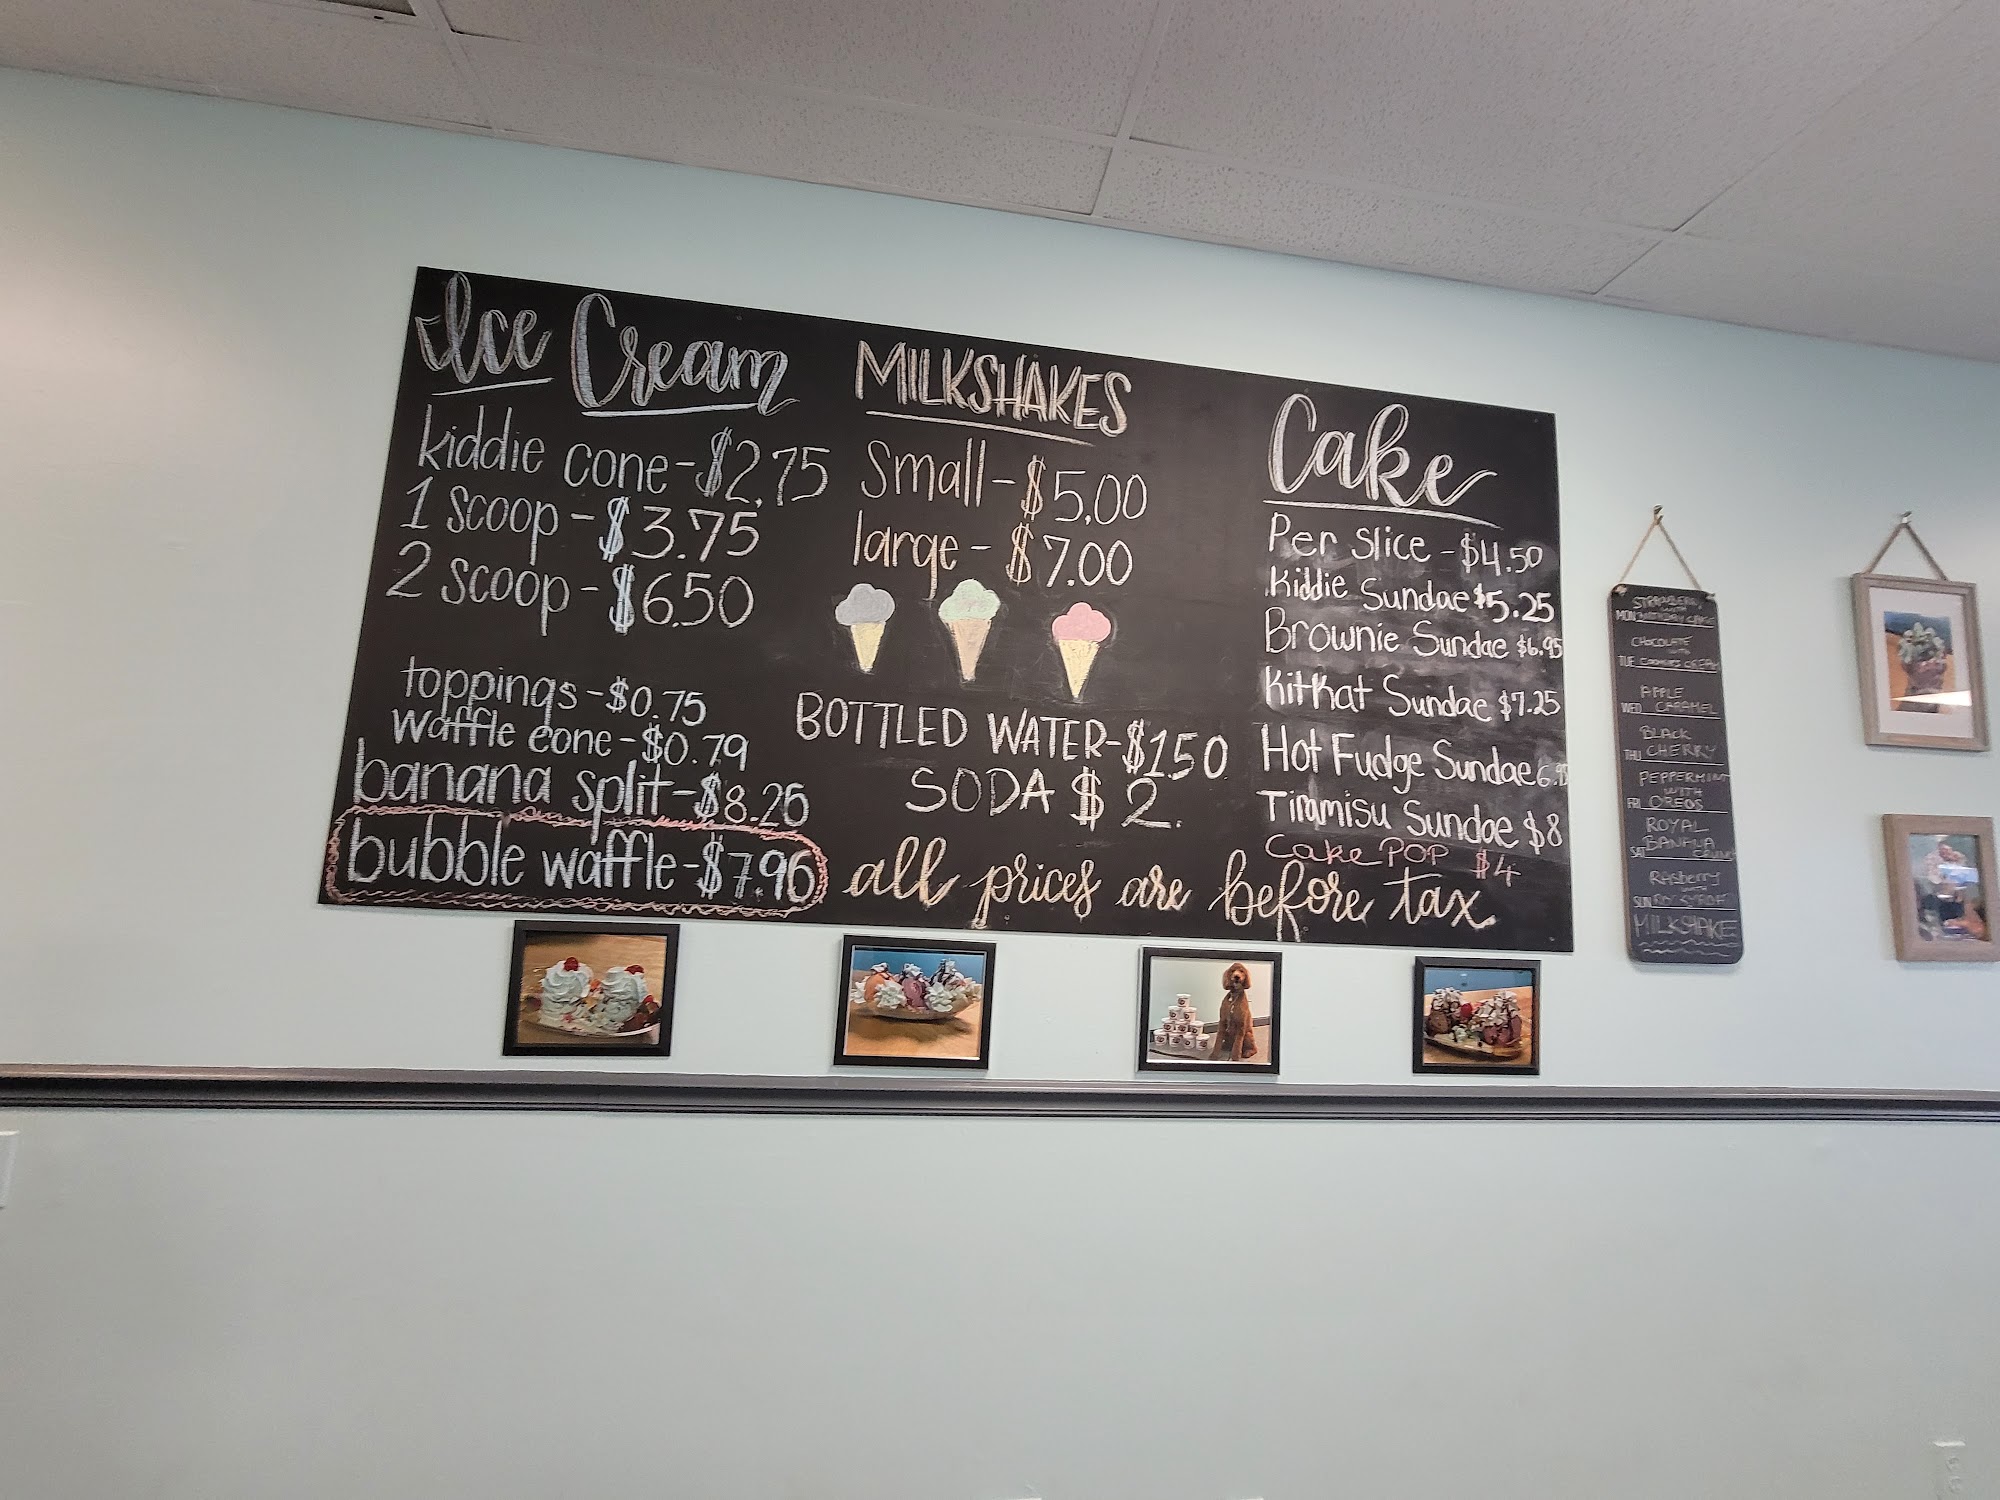 Ice Cream
kiddie cone-$2.75
1 scoop-$3.75
2 scoop-$6.50
toppings-$0.75
waffle cone-$0.79
banana split-$8.26
bubble waffle-$7.96
MILKSHAKES
Small-$5.00
large-$7.00
BOTTLED WATER-$1.50
SODA $2.
all prices are before tax
Cake
Per slice-$4.50
Kiddie Sundae $5.25
Brownie Sundae $6.95
KitKat Sundae $7.25
Hot Fudge Sundae
Tiramisu Sundae $8
Cake POP $4
WITH
MON BIRTHDAY CAKE
CHOCOLATE
WITH
TUE COOKIES CREAM
APPLE
WED CARAMEL
BLACK
THU CHERRY
PEPPERMINT
WITH
FRI OREOS
ROYAL
BANANA
SAT
RASberry
WITH
SUN
MILKSHAKE